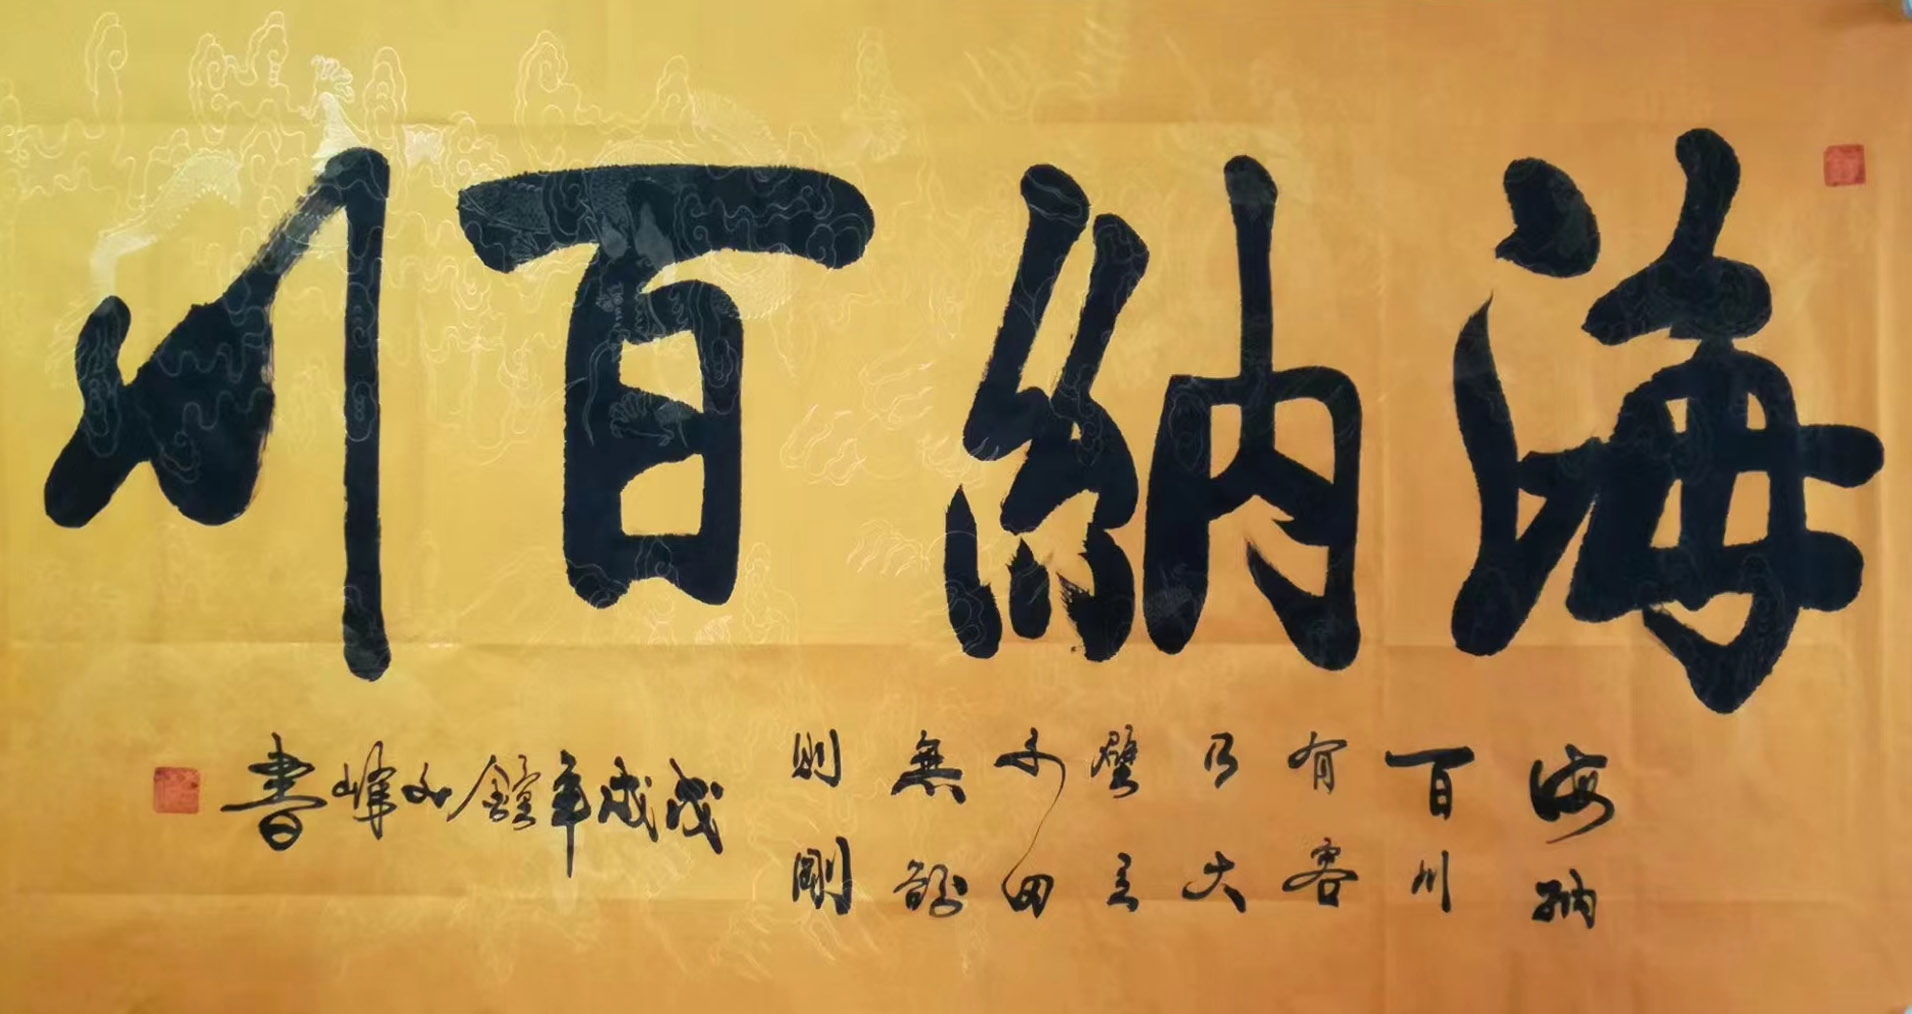 海納百川
海納
百川
有容
乃大
壁立
千仞
無欲
則剛
戊戌年鐘文峰書